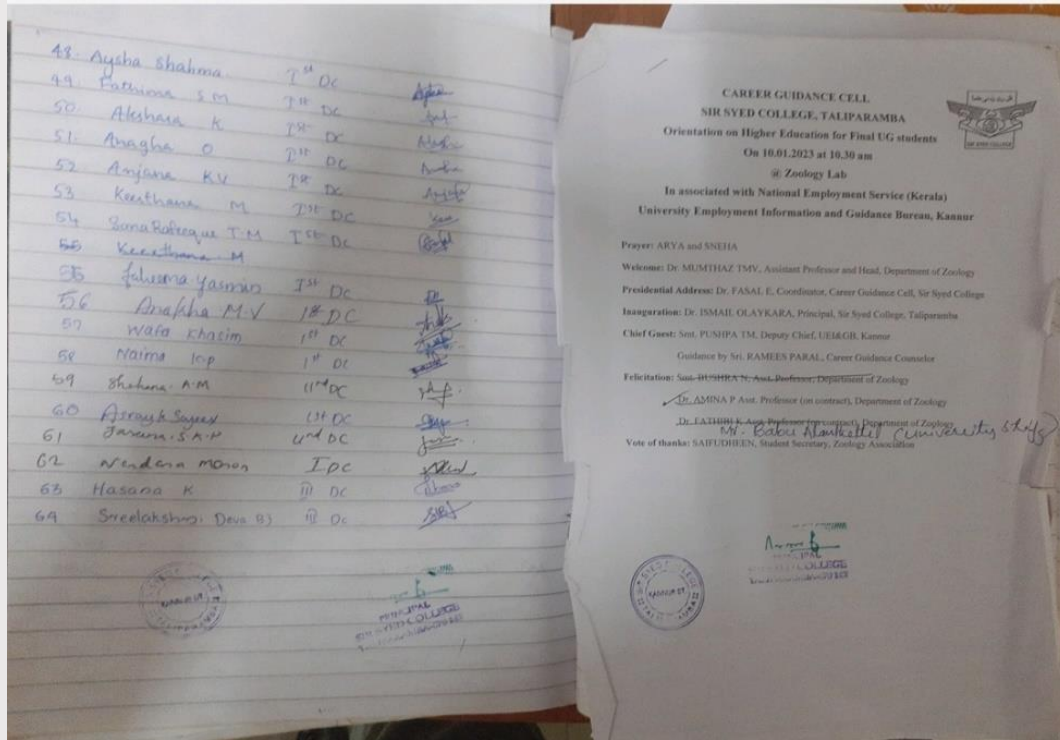 48. Aysha Shahma. Ist DC
49. Fathima S M Ist DC
50. Akshara K Ist DC
51. Anagha O Ist DC
52 Anjana KV Ist DC
53 Keerthana M Ist DC
54 Sana Rafeeque T.M Ist DC
55 Keerthana M
55 Faheema Yasmin Ist DC
56 Anakha M.V Ist DC
57 Wafa Khasim Ist DC
58 Naima K.P Ist DC
59 Shahana. A.M IInd DC
60 Ist DC
61 S.A.P IInd DC
62 Nandana Ist DC
63 Hasana K III DC
64 Sreelakshmi III DC
PRINCIPAL
SIR SYED COLLEGE
CAREER GUIDANCE CELL
SIR SYED COLLEGE, TALIPARAMBA
Orientation on Higher Education for Final UG students
On 10.01.2023 at 10.30 am
@ Zoology Lab
In associated with National Employment Service (Kerala)
University Employment Information and Guidance Bureau, Kannur
SIR SYED COLLEGE
Prayer: ARYA and SNEHA
Welcome: Dr. MUMTHAZ TMV, Assistant Professor and Head, Department of Zoology
Presidential Address: Dr. FASAL E, Coordinator, Career Guidance Cell, Sir Syed College
Inauguration: Dr. ISMAIL OLAYKARA, Principal, Sir Syed College, Taliparamba
Chief Guest: Smt. PUSHPA TM, Deputy Chief, UEI&GB, Kannur
Guidance by Sri. RAMEES PARAL, Career Guidance Counselor
Felicitation: Smt. BUSHRA N, Asst. Professor, Department of Zoology
Dr. AMINA P Asst. Professor (on contract), Department of Zoology
Dr. FATHIBI K Asst. Professor (on contract), Department of Zoology
Mr. Babu (University Staff)
Vote of thanks: SAIFUDHEEN, Student Secretary, Zoology Association
PRINCIPAL
COLLEGE